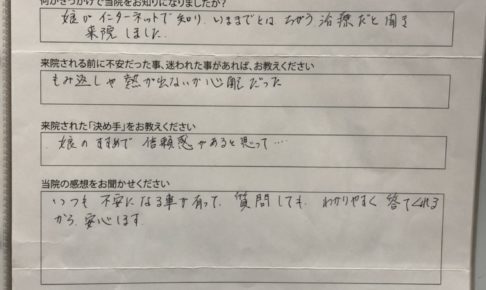 何がきっかけで当院をお知りになりましたか?
娘がインターネットで知り、いままでとはちがう治療だと聞き
来院しました。
来院される前に不安だった事、迷われた事があれば、お教えください
もみ返しや熱が出ないか心配だった
来院された「決め手」をお教えください
娘のすすめで信頼感があると思って…
当院の感想をお聞かせください
いつも不安になる事が有って、質問しても、わかりやすく答てくれる
から、安心します